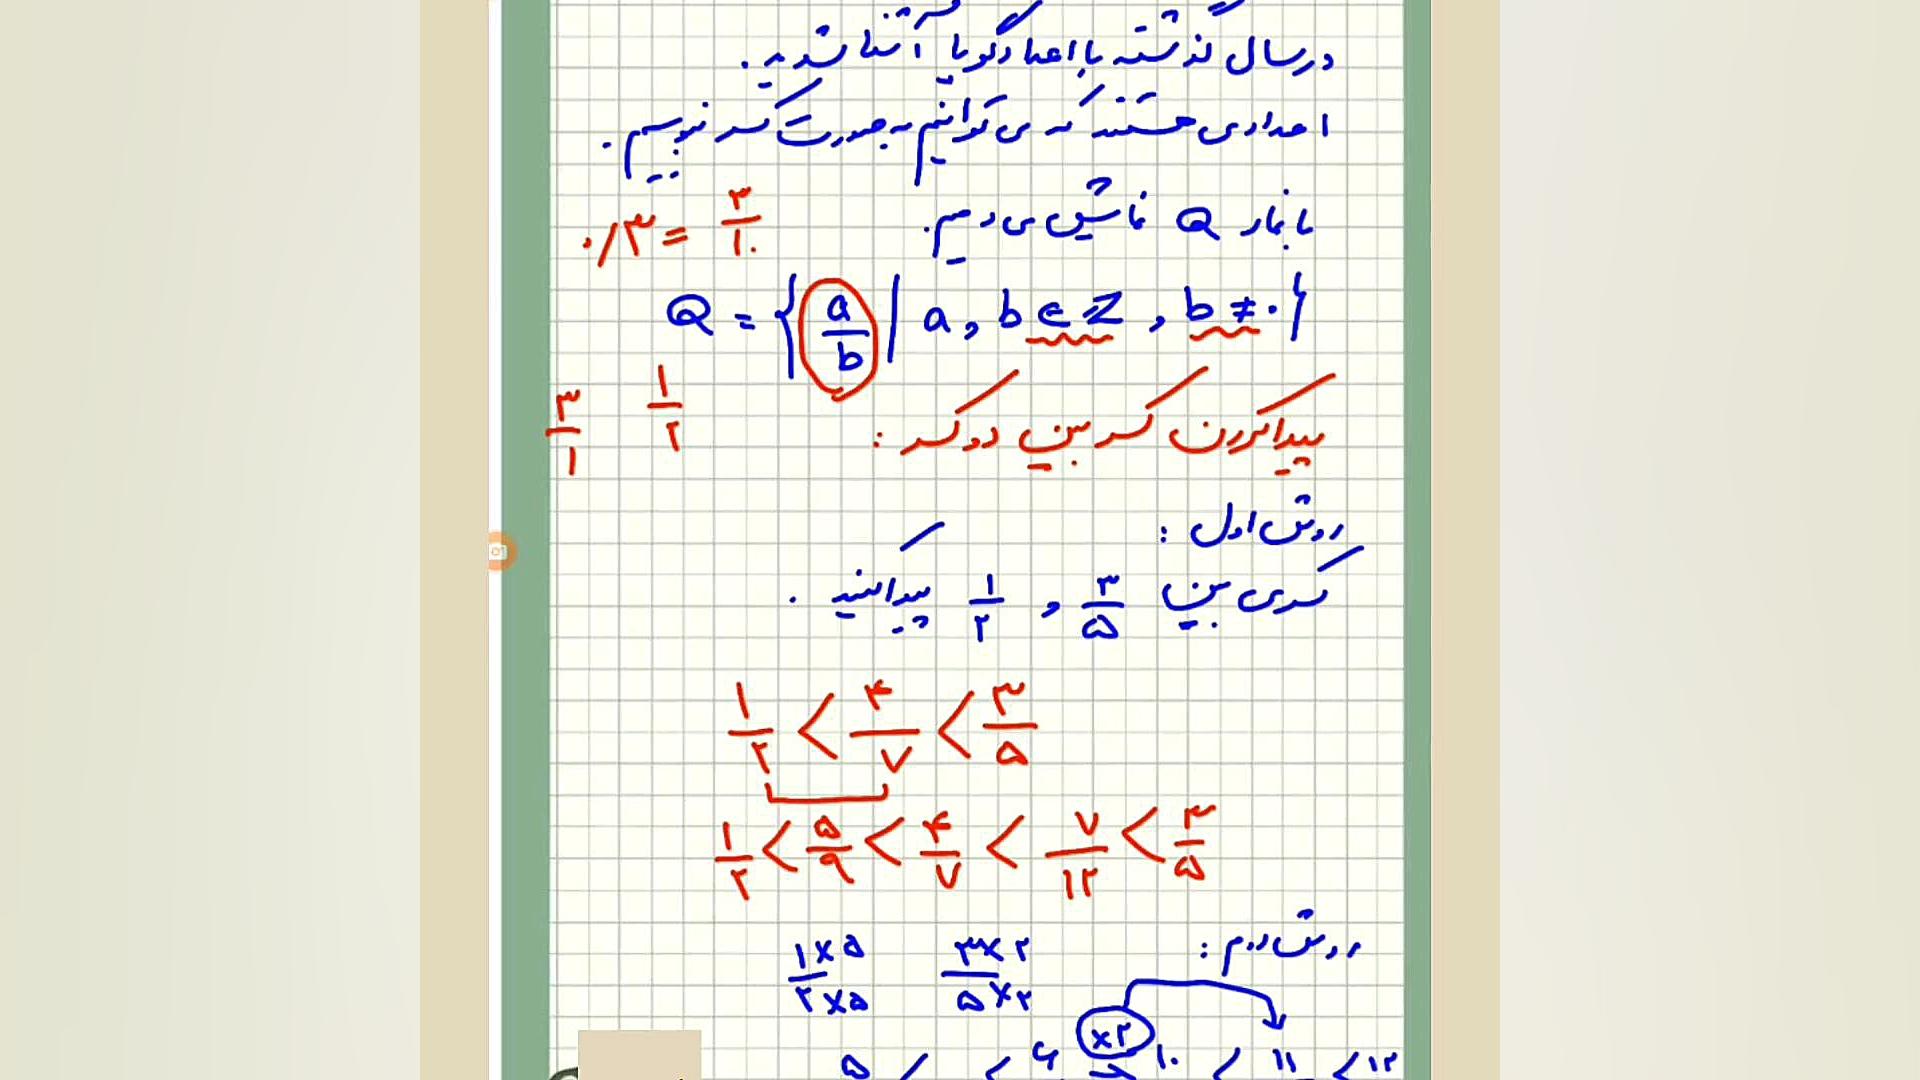 در سال گذشته با اعداد گویا آشنا شدید.
اعدادی هستند که می توانیم به صورت کسر بنویسیم.
با نماد Q نمایش می دهیم.
۰/۳ = ۳/۱۰
Q = { a/b | a, b ∈ Z, b ≠ ۰ }
۳/۱ ۱/۲
پیدا کردن کسر بین دو کسر :
روش اول :
کسری بین ۳/۵ و ۱/۲ پیدا کنید .
۱/۲ < ۴/۷ < ۳/۵
۱/۲ < ۵/۹ < ۴/۷ < ۷/۱۲ < ۳/۵
روش دوم :
۱×۵/۲×۵ ۳×۲/۵×۲
×۲
۵ < < ۶ ۱۰ < ۱۱ < ۱۲